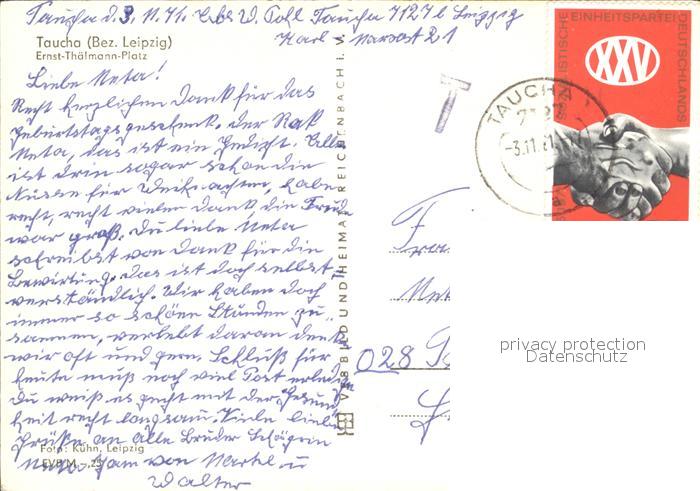 Taucha d. 3. 11. 71. Abs W. Pohl Taucha 7127 b Leipzig
Karl-Marxst 21
Taucha (Bez. Leipzig)
Ernst-Thälmann-Platz
Liebe Meta!
Recht herzlichen Dank für das
Geburtstagsgeschenk. der
Meta, das ist ein Gedicht. Alles
ist drin sogar schon die
Nüsse für Weihnachten, habe
recht, recht vielen Dank die Freude
war groß. Du liebe Meta
schreibst von Dank für die
Bewirtung. das ist doch selbst
verständlich. Wir haben doch
immer so schöne Stunden zu-
sammen, verlebt daran denken
wir oft und gern. Schluß für
heute muß noch viel Post erledigen
Du weißt es geht mit der Gesund
heit recht langsam. Viele liebe
Grüße an alle Brüder
von Martel u
Walter
Foto: Kühn, Leipzig
VEB BILD UND HEIMAT REICHENBACH I. V.
T
TAUCHA
7127
-3.11.71
SOZIALISTISCHE EINHEITSPARTEI DEUTSCHLANDS
XXV
Frau
Meta
028
privacy protection
Datenschutz